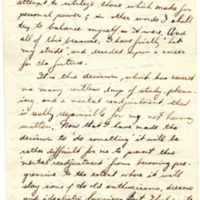 attempt to utilize those which make for
personal power; in other words I shall
try to balance myself as it were. And
all of this because, I have finally "hit
my stride", and decided upon a career
for the future.
It is this decision, which has caused
so many restless days of study, plann-
ing, and a mental readjustment, that
is really responsible for my not having
written. Now that I have made the
decision to do something it will be
rather difficult for me to prevent this
mental readjustment from becoming pro-
gressive to the extent where it will
slay some of the old enthusiasms, desires
and